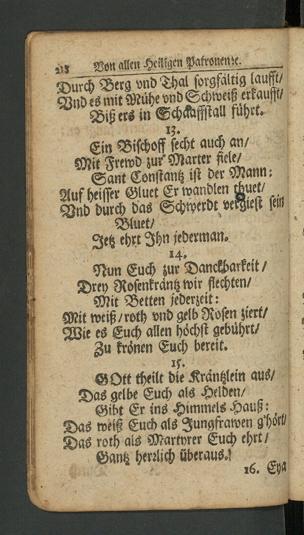 218 Von allen Heiligen Patronen ꝛc.
Durch Berg vnd Thal sorgfältig laufft/
Vnd es mit Mühe vnd Schweiß erkaufft/
Biß ers in Schaaffstall führt.
13.
Ein Bischoff secht auch an/
Mit Frewd zur Marter fiele/
Sant Constantz ist der Mann:
Auf heisser Gluet Er wandlen thuet/
Vnd durch das Schwerdt vergiest sein
Bluet/
Jetz ehrt Ihn jederman.
14.
Nun Euch zur Danckbarkeit/
Drey Rosenkräntz wir flechten/
Mit Betten jederzeit:
Mit weiß/ roth vnd gelb Rosen ziert/
Wie es Euch allen höchst gebührt/
Zu krönen Euch bereit.
15.
GOtt theilt die Kräntzlein aus/
Das gelbe Euch als Helden/
Gibt Er ins Himmels Hauß:
Das weiß Euch als Jungfrawen g'hört/
Das roth als Martyrer Euch ehrt/
Gantz herrlich überaus.
16. Eya